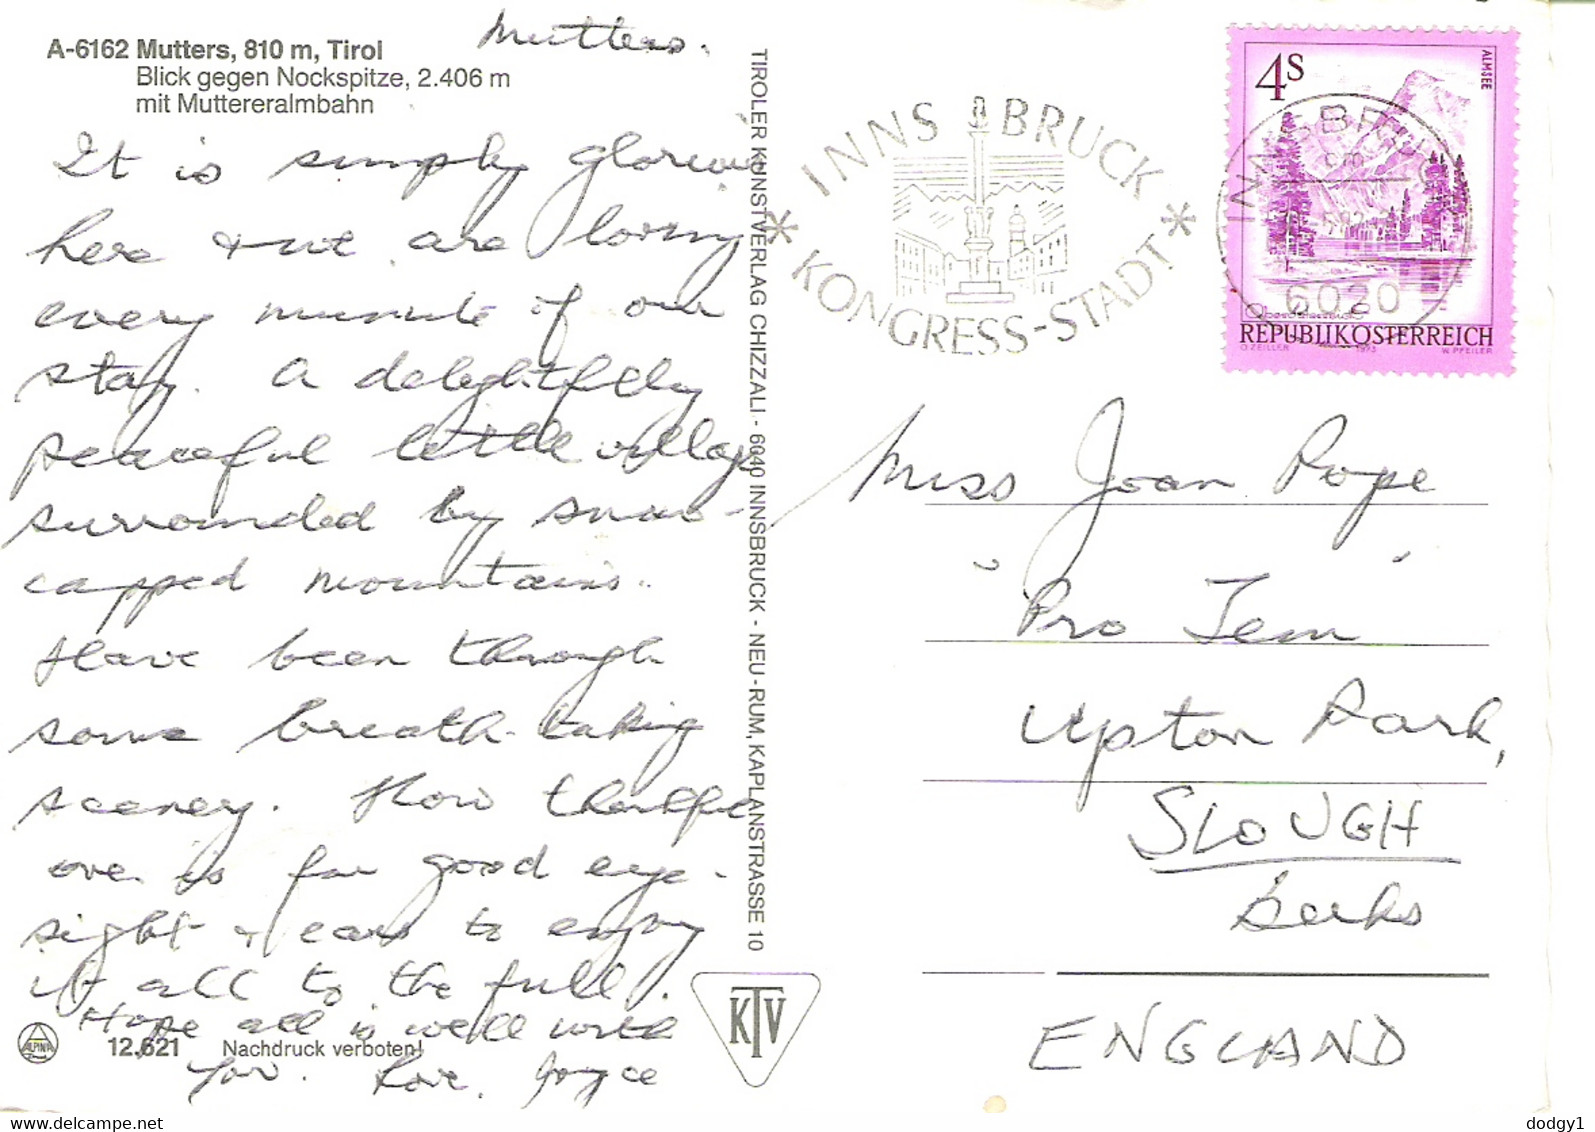 A-6162 Mutters, 810 m, Tirol
Blick gegen Nockspitze, 2.406 m
mit Muttereralmbahn
Mutters.
It is simply glorious
here & we are loving
every minute of our
stay. A delightfully
peaceful little village
surrounded by snow-
capped mountains.
Have been through
some breath-taking
scenery. How thankful
one is for good eye-
sight & ears to enjoy
it all to the full.
Hope all is well with
you. Love, Joyce
12.621 Nachdruck verboten!
ALPINA
TIROLER KUNSTVERLAG CHIZZALI - 6040 INNSBRUCK - NEU-RUM, KAPLANSTRASSE 10
KTV
INNSBRUCK
* KONGRESS-STADT *
INNSBRUCK
6020
4S
ALMSEE
REPUBLIK ÖSTERREICH
O. ZEILLER 1973 W. PFEILER
Miss Joan Pope
"Pro Tem"
Upton Park,
SLOUGH
Berks
ENGLAND
www.delcampe.net
dodgy1